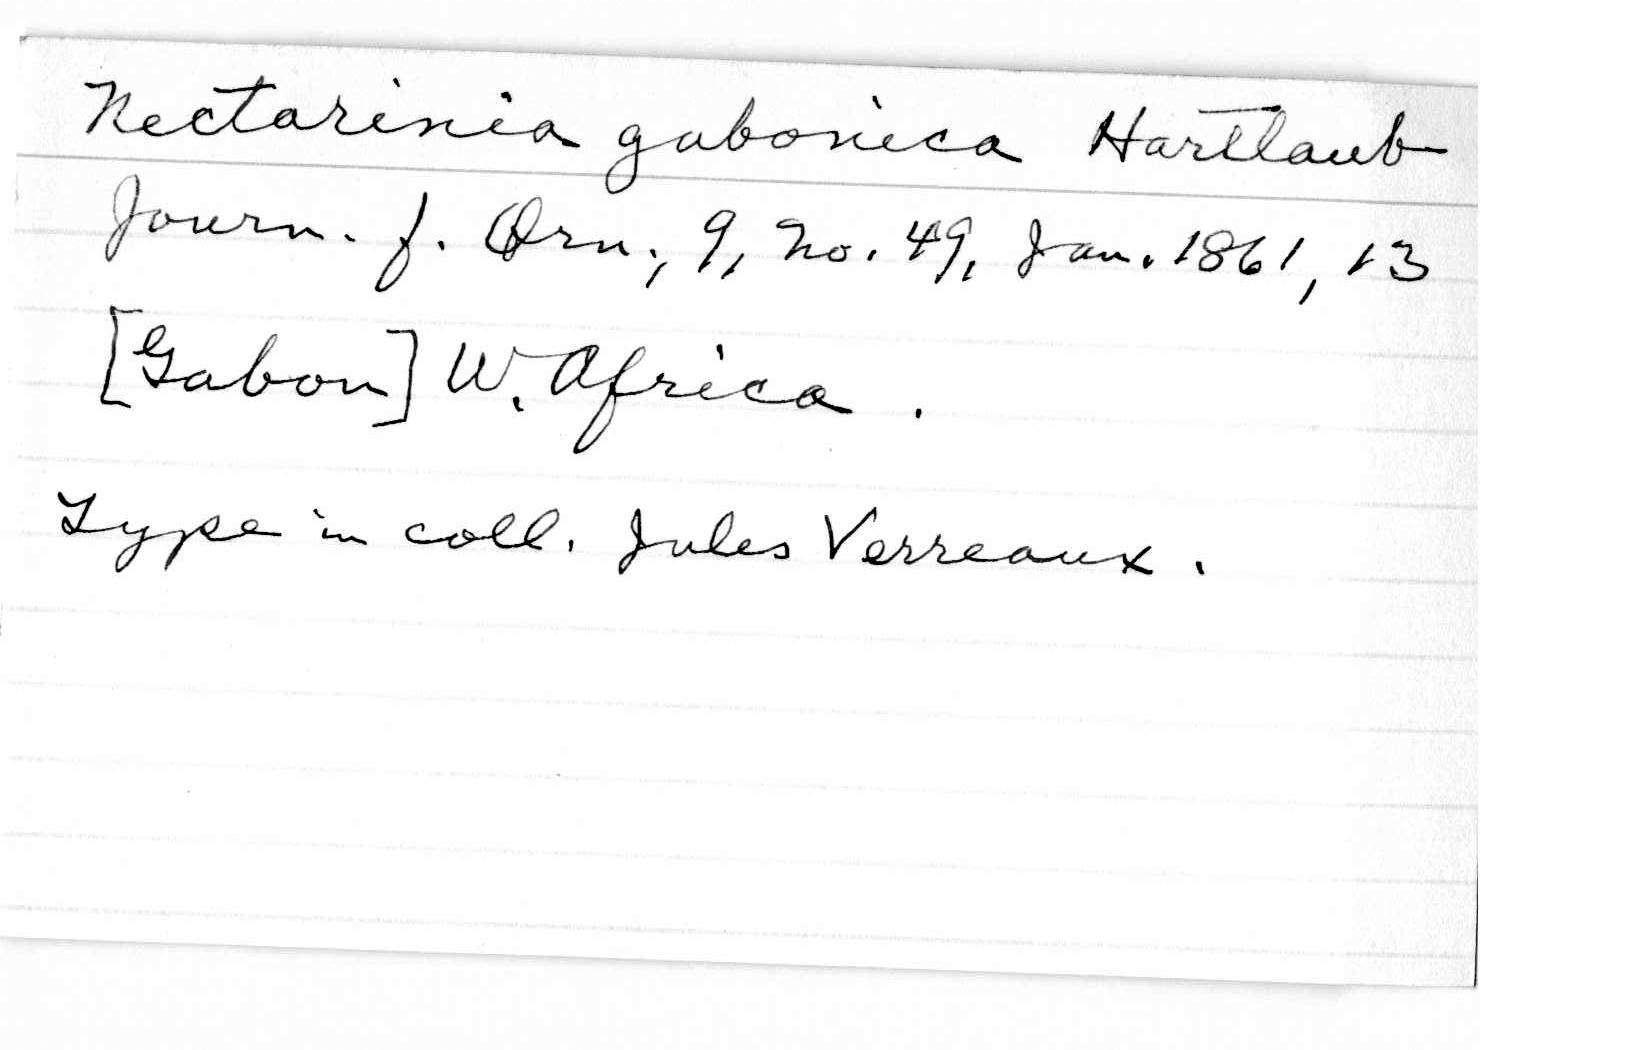 Nectarinia gabonica Hartlaub
Journ. f. Orn., 9, no. 49, Jan. 1861, 13
[Gabon] W. Africa.
Type in coll. Jules Verreaux.